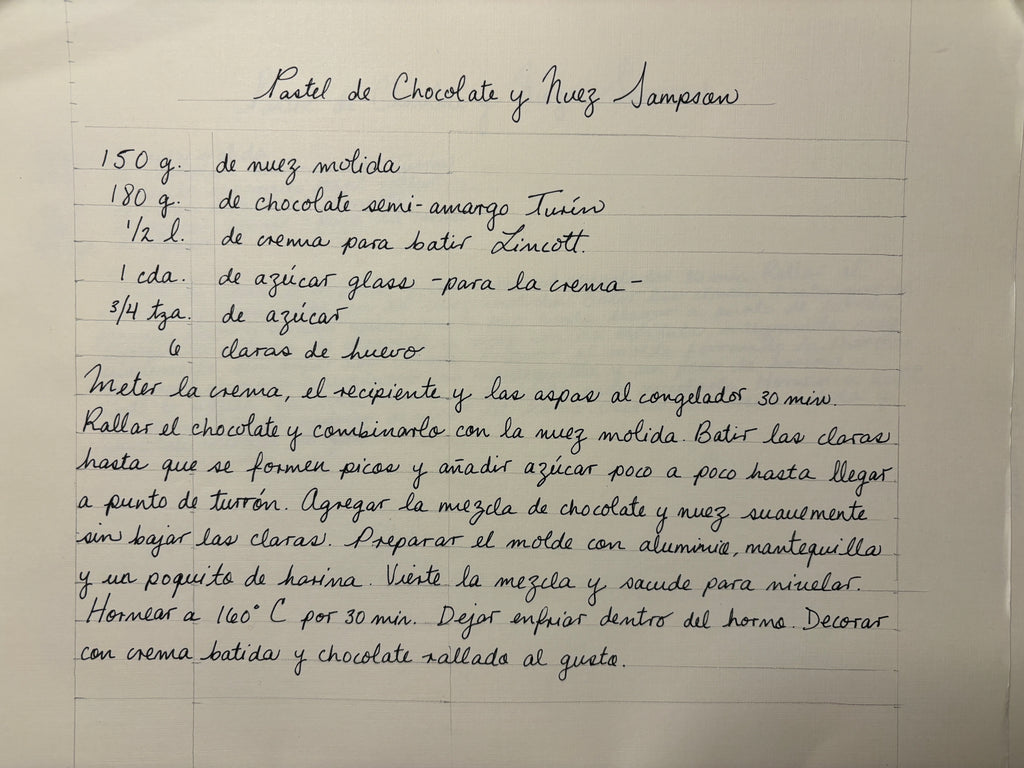 Pastel de Chocolate y Nuez Sampson
150 g. de nuez molida
180 g. de chocolate semi-amargo Turín
1/2 l. de crema para batir Lincott.
1 cda. de azúcar glass -para la crema-
3/4 tza. de azúcar
6 claras de huevo
Meter la crema, el recipiente y las aspas al congelador 30 min.
Rallar el chocolate y combinarlo con la nuez molida. Batir las claras
hasta que se formen picos y añadir azúcar poco a poco hasta llegar
a punto de turrón. Agregar la mezcla de chocolate y nuez suavemente
sin bajar las claras. Preparar el molde con aluminio, mantequilla
y un poquito de harina. Vierte la mezcla y sacude para nivelar.
Hornear a 160° C por 30 min. Dejar enfriar dentro del horno. Decorar
con crema batida y chocolate rallado al gusto.